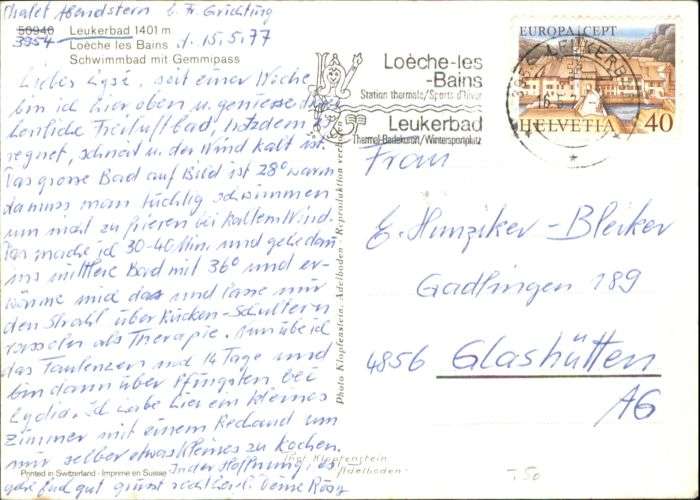 Chalet Abendstern b. Fr. Grichting
50946 Leukerbad 1401 m
3954 Loèche les Bains d. 15.5.77
Schwimmbad mit Gemmipass
Liebes Lysé, seit einer Woche
bin ich hier oben u. geniesse das
herrliche Freiluftbad, trotzdem es
regnet, schneit u. der Wind kalt ist.
Das grosse Bad auf Bild ist 28° warm
da muss man tüchtig schwimmen
um nicht zu frieren bei kaltem Wind.
Das mache ich 30-40 Min. und gehe dann
ins mittlere Bad mit 36° und er-
wärme mich da und lasse mir
den Strahl über Rücken-Schultern
rasseln als Therapie. Nun übe ich
das Faulenzen noch 14 Tage und
bin dann über Pfingsten bei
Lydia. Ich habe hier ein kleines
Zimmer mit einem Rechaud um
mir selber etwas kleines zu kochen.
In der Hoffnung, es
gehe Euch gut grüsst herzlich Deine Rösy
Printed in Switzerland - Imprimé en Suisse
Photo Klopfenstein, Adelboden - Reproduktion verboten
Phot. Klopfenstein
Adelboden
Loèche-les
-Bains
Station thermale/Sports d'hiver
Leukerbad
Thermal-Badekurort/Wintersportplatz
3954 LEUKERBAD
EUROPA CEPT
HELVETIA 40
Frau
E. Hunziker-Bleiker
Gadlingen 189
4856 Glashütten
AG